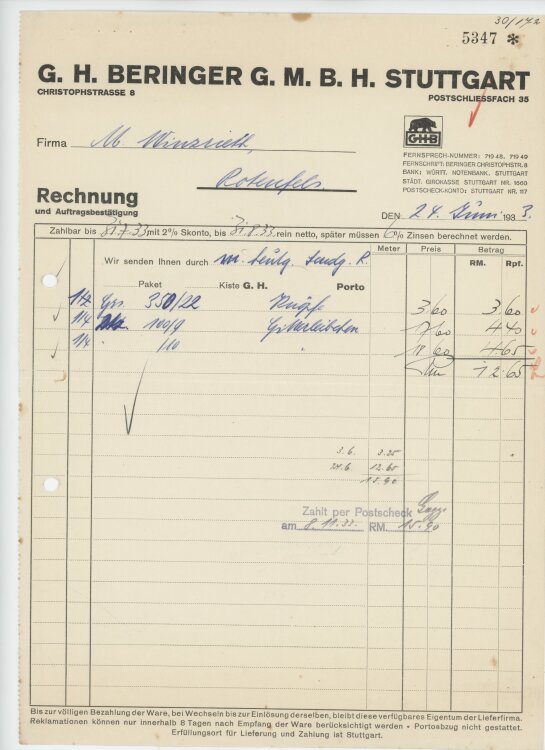 30/172
5347 *
G. H. BERINGER G. M. B. H. STUTTGART
CHRISTOPHSTRASSE 8
POSTSCHLIESSFACH 35
G·H·B
Firma M.
FERNSPRECH-NUMMER: 719 48, 719 49
FERNSCHRIFT: BERINGER CHRISTOPHSTR. 8
BANK: WÜRTT. NOTENBANK, STUTTGART
STÄDT. GIROKASSE STUTTGART NR. 1660
POSTSCHECK-KONTO: STUTTGART NR. 117
Rotenfels.
Rechnung
und Auftragsbestätigung
DEN 24. Juni 1933.
Zahlbar bis 31.7.33 mit 2% Skonto, bis 31.8.33 rein netto, später müssen 6% Zinsen berechnet werden.
Meter Preis Betrag
Wir senden Ihnen durch m. heutg. Sendg. R.
RM. Rpf.
Paket Kiste G. H. Porto
1/2 Grs. 350/22 3/60 3,60
1/4 100/9 17/60 4,40
1/4 18/60 4.65
12.65
3.6. 3.25
24.6. 12.65
15.90
Zahlt per Postscheck
am 8.11.33. RM. 15.90
Bis zur völligen Bezahlung der Ware, bei Wechseln bis zur Einlösung derselben, bleibt diese verfügbares Eigentum der Lieferfirma.
Reklamationen können nur innerhalb 8 Tagen nach Empfang der Ware berücksichtigt werden • Portoabzug nicht gestattet.
Erfüllungsort für Lieferung und Zahlung ist Stuttgart.